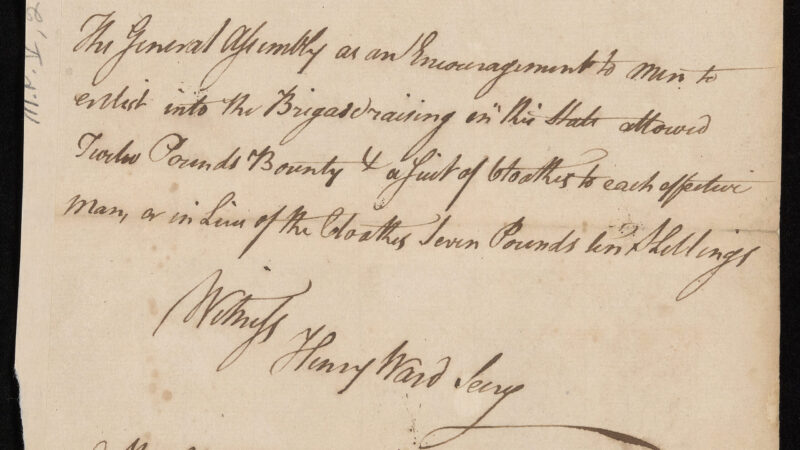 The General Assembly as an Encouragement to men to
enlist into the Brigade raising in this State allowed
Twelve Pounds Bounty & a Suit of Cloathes to each effective
man, or in Lieu of the Cloathes Seven Pounds ten Shillings
Witness
Henry Ward Secry